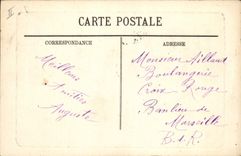 CARTE POSTALE
CORRESPONDANCE
ADRESSE
Meilleures
Amitiés
Auguste
Monsieur Aillaud
Boulangerie
Croix Rouge
Banlieue de
Marseille
B-d-R.